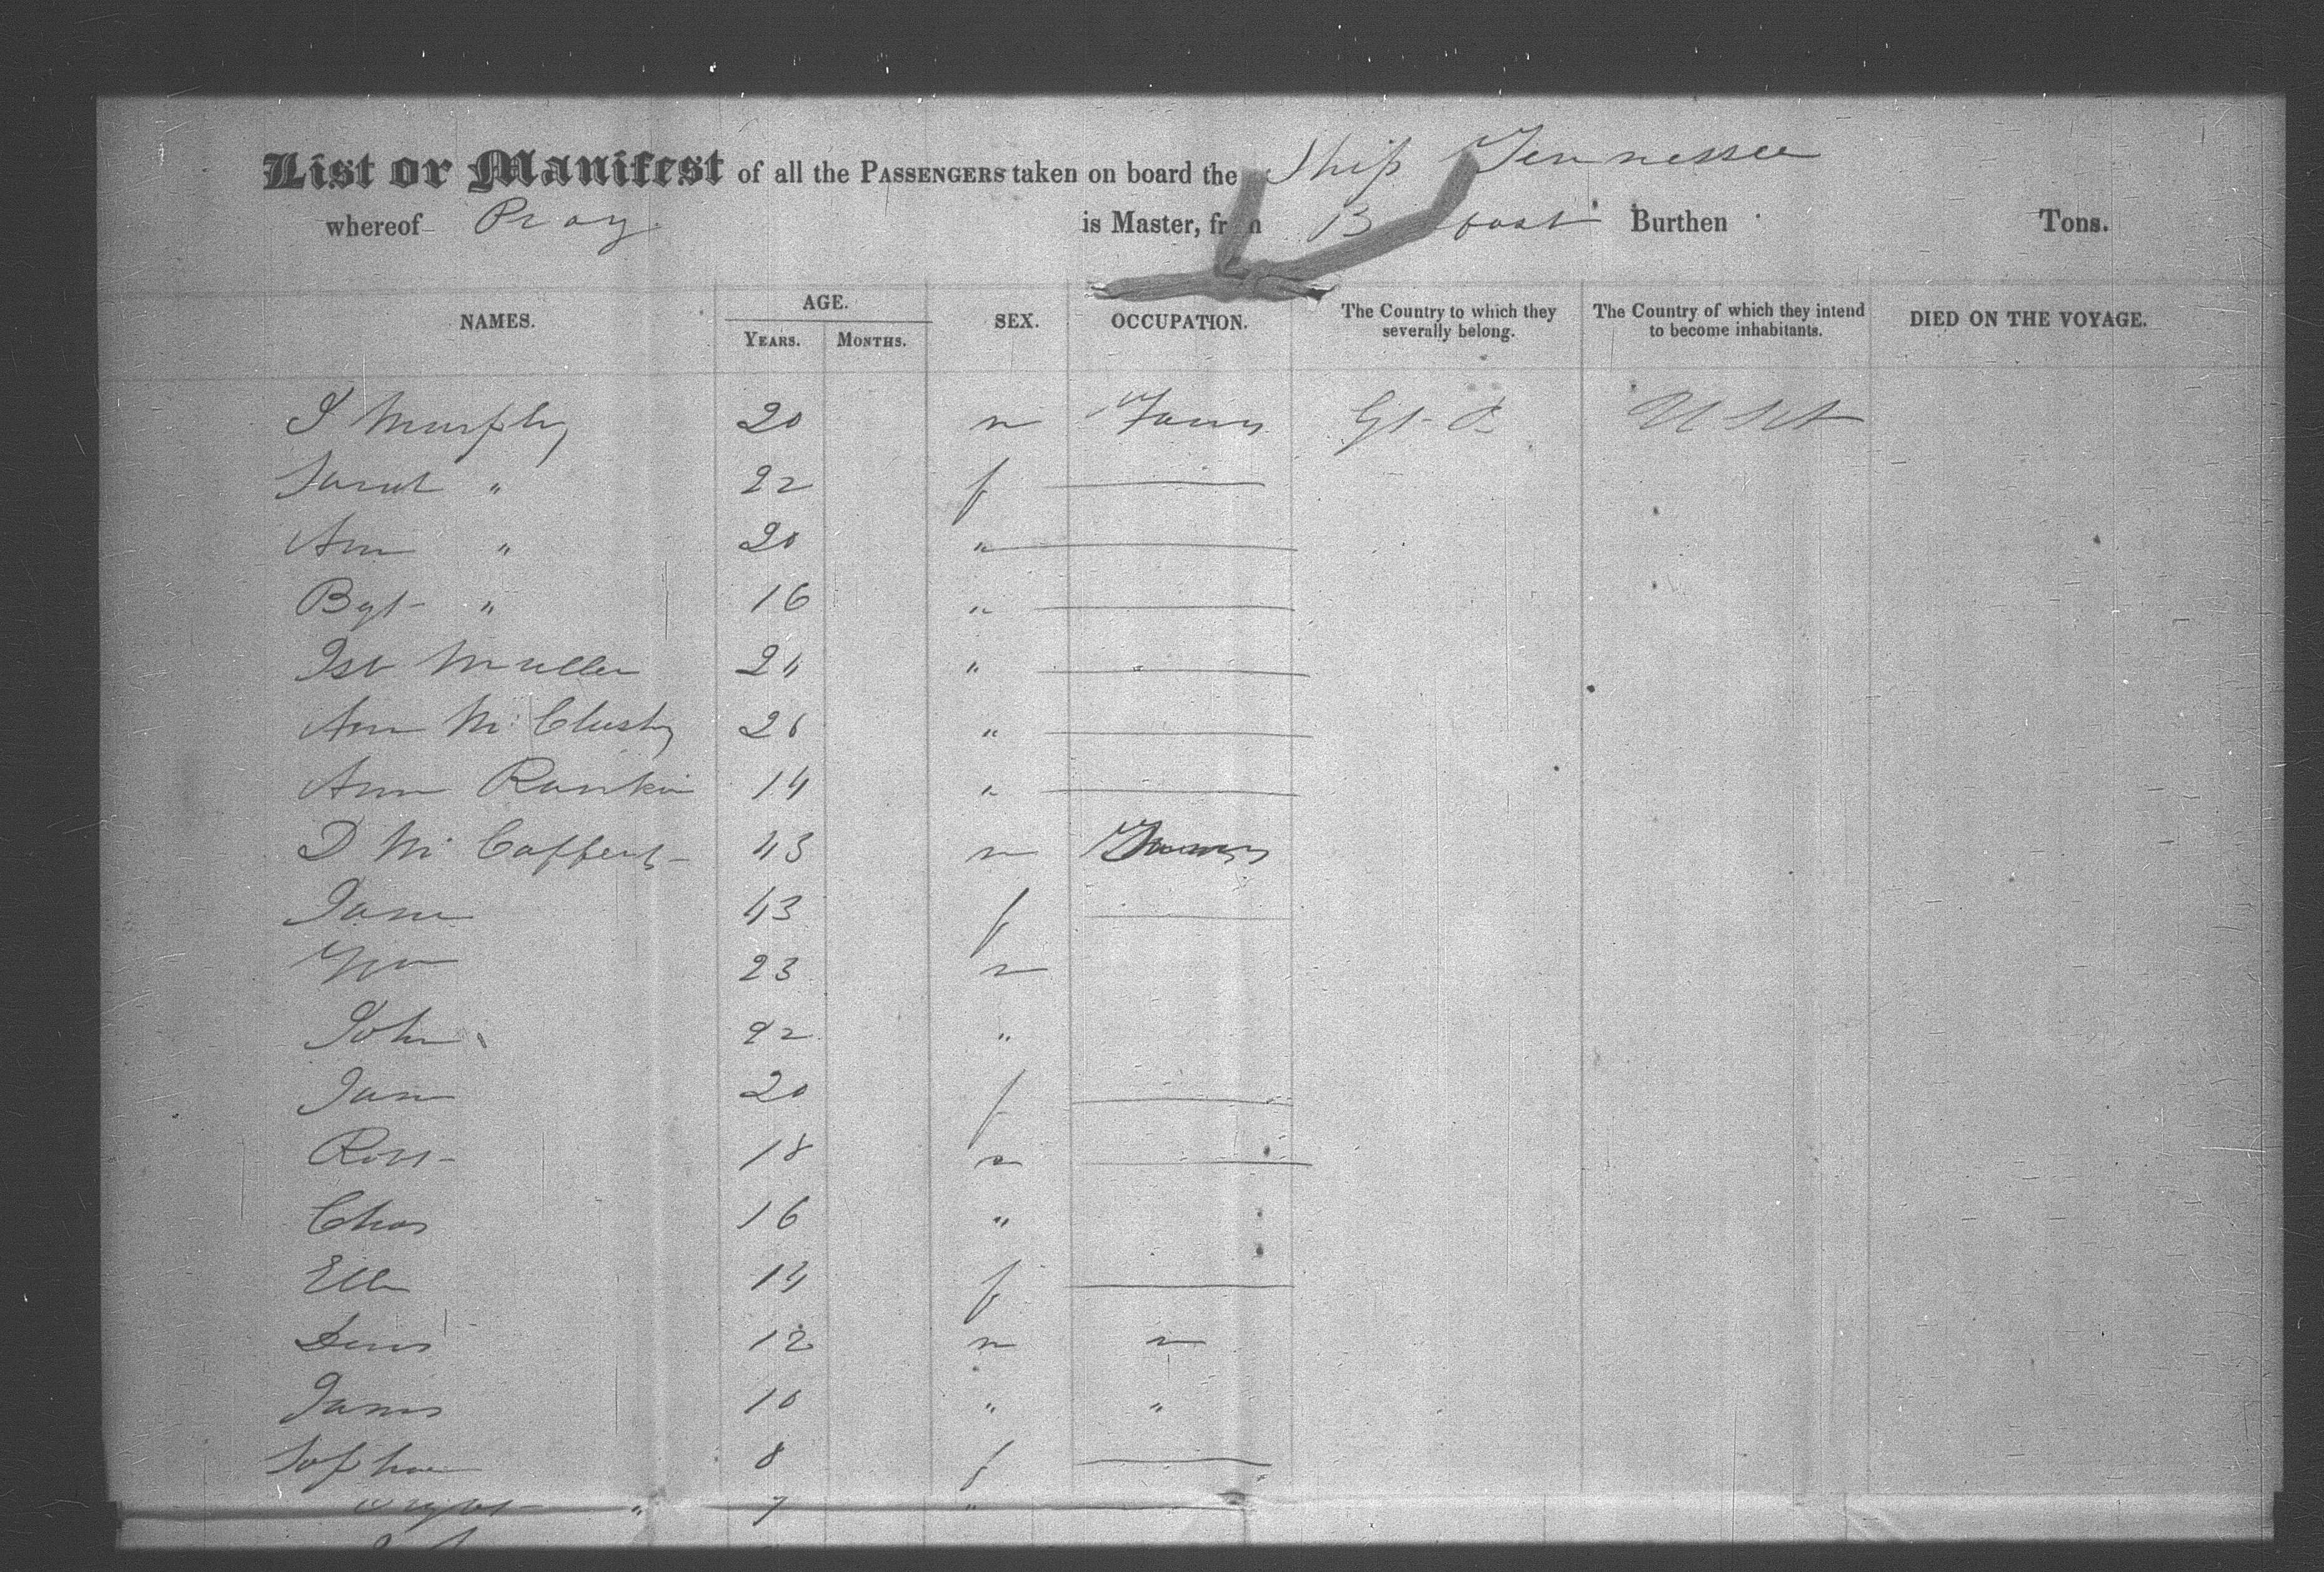 List or Manifest of all the PASSENGERS taken on board the Ship Tennessee
whereof Pray is Master, from Burthen Tons.
NAMES. AGE. SEX. OCCUPATION. The Country to which they severally belong. The Country of which they intend to become inhabitants. DIED ON THE VOYAGE.
YEARS. MONTHS.
Murphy 20 m Gt- B
Sarah " 22 f
Ann " 20 "
Bgt- " 16 "
Isb Mullen "
Ann Mc Clusky "
Ann Rankin 14 "
D Mc Caffert- 43 m
Jane 43 f
Wm 23 m
John 22 "
Jane 20 f
18 m
Chas 16 "
Ellen 14 f
Denis 12 m "
James 10 " "
Sophia 8 f
" 7 "